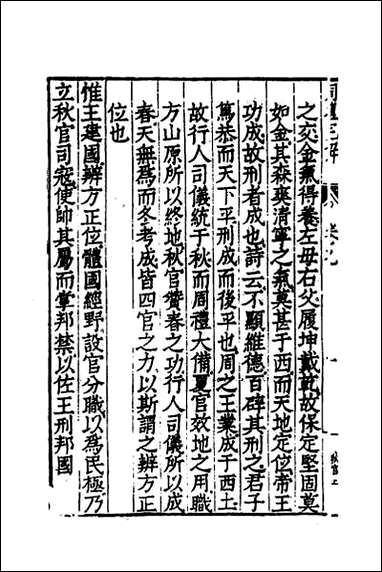 周禮完解 卷九
之交金氣得養左母右父履坤戴乾故保定堅固莫
如金其森爽清寧之氣莫甚于西而天地定位帝王
功成故刑者成也詩云不顯維德百辟其刑之君子
篤恭而天下平刑成而後平也周之王業成于西土
故行人司儀統于秋而周禮大備夏官效地之用職
方山原所以終地秋官贊春之功行人司儀所以成
春天無為而冬考成皆四官之力以斯謂之辨方正
位也
惟王建國辨方正位體國經野設官分職以為民極乃
立秋官司寇使帥其屬而掌邦禁以佐王刑邦國